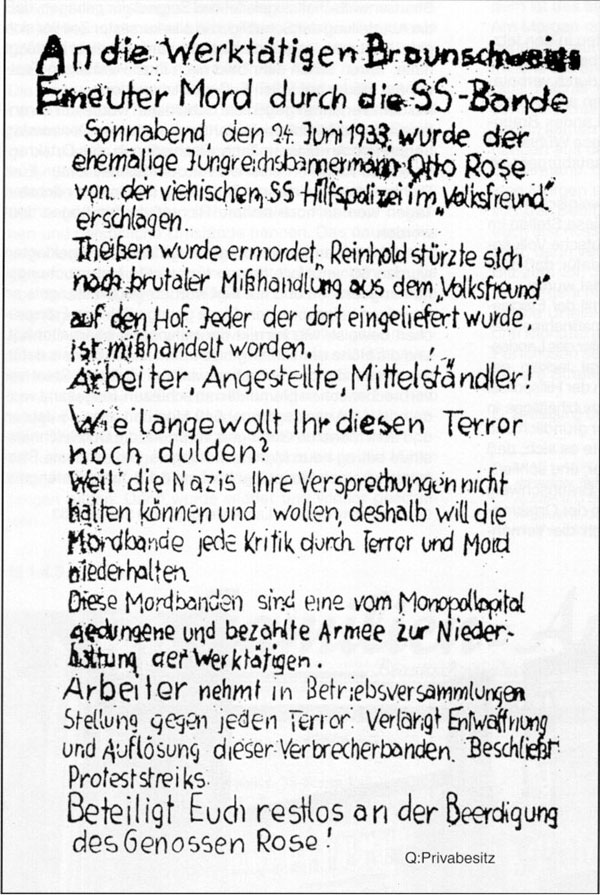 An die Werktätigen Braunschweigs
Erneuter Mord durch die SS-Bande
Sonnabend den 24 Juni 1933 wurde der
ehemalige Jungreichsbannermann Otto Rose
von der viehischen SS Hilfspolizei im „Volksfreund"
erschlagen.
Theißen wurde ermordet. Reinhold stürzte sich
nach brutaler Mißhandlung aus dem „Volksfreund"
auf den Hof. Jeder der dort eingeliefert wurde,
ist mißhandelt worden.
Arbeiter, Angestellte, Mittelständler!
Wie langewollt Ihr diesen Terror
noch dulden?
Weil die Nazis Ihre Versprechungen nicht
halten können und wollen, deshalb will die
Mordbande jede Kritik durch Terror und Mord
niederhalten.
Diese Mordbanden sind eine vom Monopollapital
gedungene und bezahlte Armee zur Nieder-
haltung der Werktätigen.
Arbeiter nehmt in Betriebsversammlungen
Stellung gegen jeden Terror. Verlangt Entwaffnung
und Auflösung dieser Verbrecherbanden. Beschließt
Proteststreiks.
Beteiligt Euch restlos an der Beerdigung
des Genossen Rose!
Q:Privabesitz